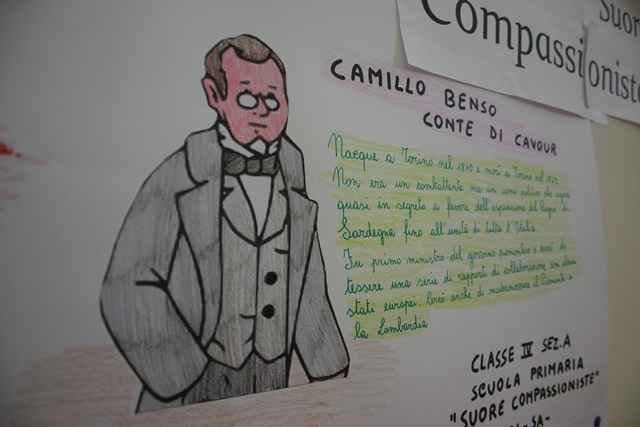 Compassi
Suor
oniste
CAMILLO BENSO
CONTE DI CAVOUR
Nacque a Torino nel e morì a Torino nel
Non era un combattente ma un uomo politico che
quasi in segreto a favore dell'espansione del Regno di
Sardegna fino all'unità di tutta l'Italia.
Fu primo ministro del governo piemontese e cercò di
tessere una serie di rapporti di collaborazione con alcuni
stati europei. Cercò anche di modernizzare il Piemonte e
la Lombardia
CLASSE IV SEZ.A
SCUOLA PRIMARIA
"SUORE COMPASSIONISTE"
-SA-